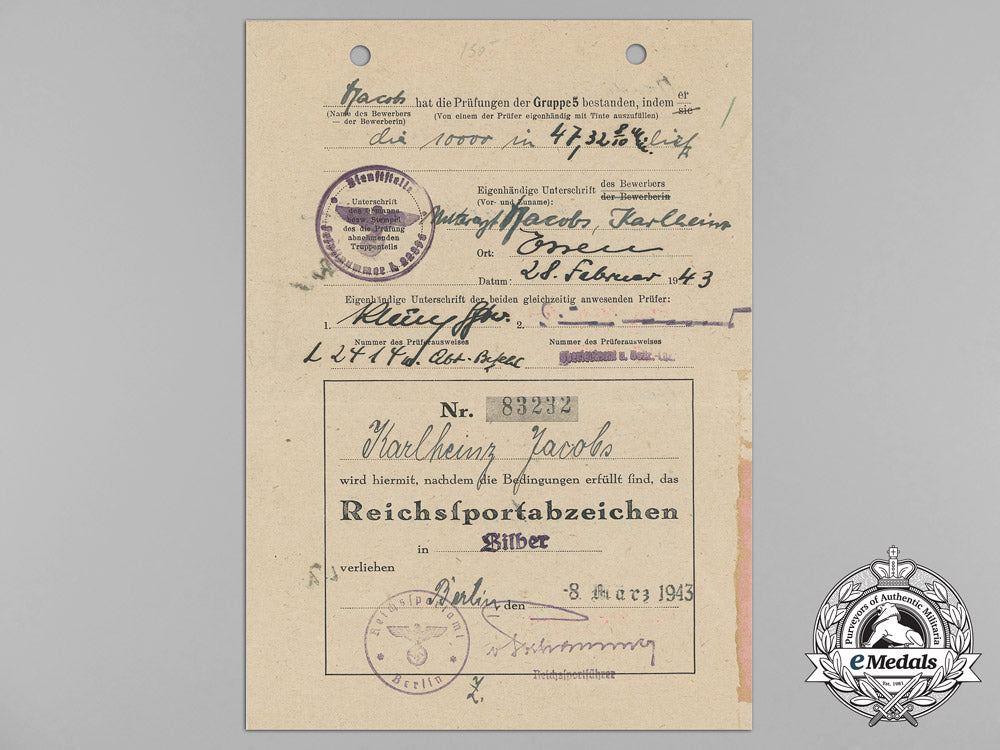 150-
Jacobs hat die Prüfungen der Gruppe 5 bestanden, indem er
sie
(Name des Bewerbers (Von einem der Prüfer eigenhändig mit Tinte auszufüllen)
— der Bewerberin)
die 10000 in 47,32 8/10 lief
Dienststelle
Feldpostnummer
Unterschrift
des Obmanns
bezw. Stempel
des die Prüfung
abnehmenden
Truppenteils
Eigenhändige Unterschrift des Bewerbers
der Bewerberin
(Vor- und Zuname):
Unterarzt Jacobs, Karlheinz
Ort: Essen
Datum: 28. Februar 1943
Eigenhändige Unterschrift der beiden gleichzeitig anwesenden Prüfer:
1. 2.
Nummer des Prüferausweises Nummer des Prüferausweises
L 2414
Nr. 83232
Karlheinz Jacobs
wird hiermit, nachdem die Bedingungen erfüllt ſind, das
Reichsſportabzeichen
in Silber
verliehen
Berlin den -8. März 1943
Reichsſportamt
Berlin
v Tschammer
Reichsſportführer
Z.
Purveyors of Authentic Militaria
eMedals
Est. 1981